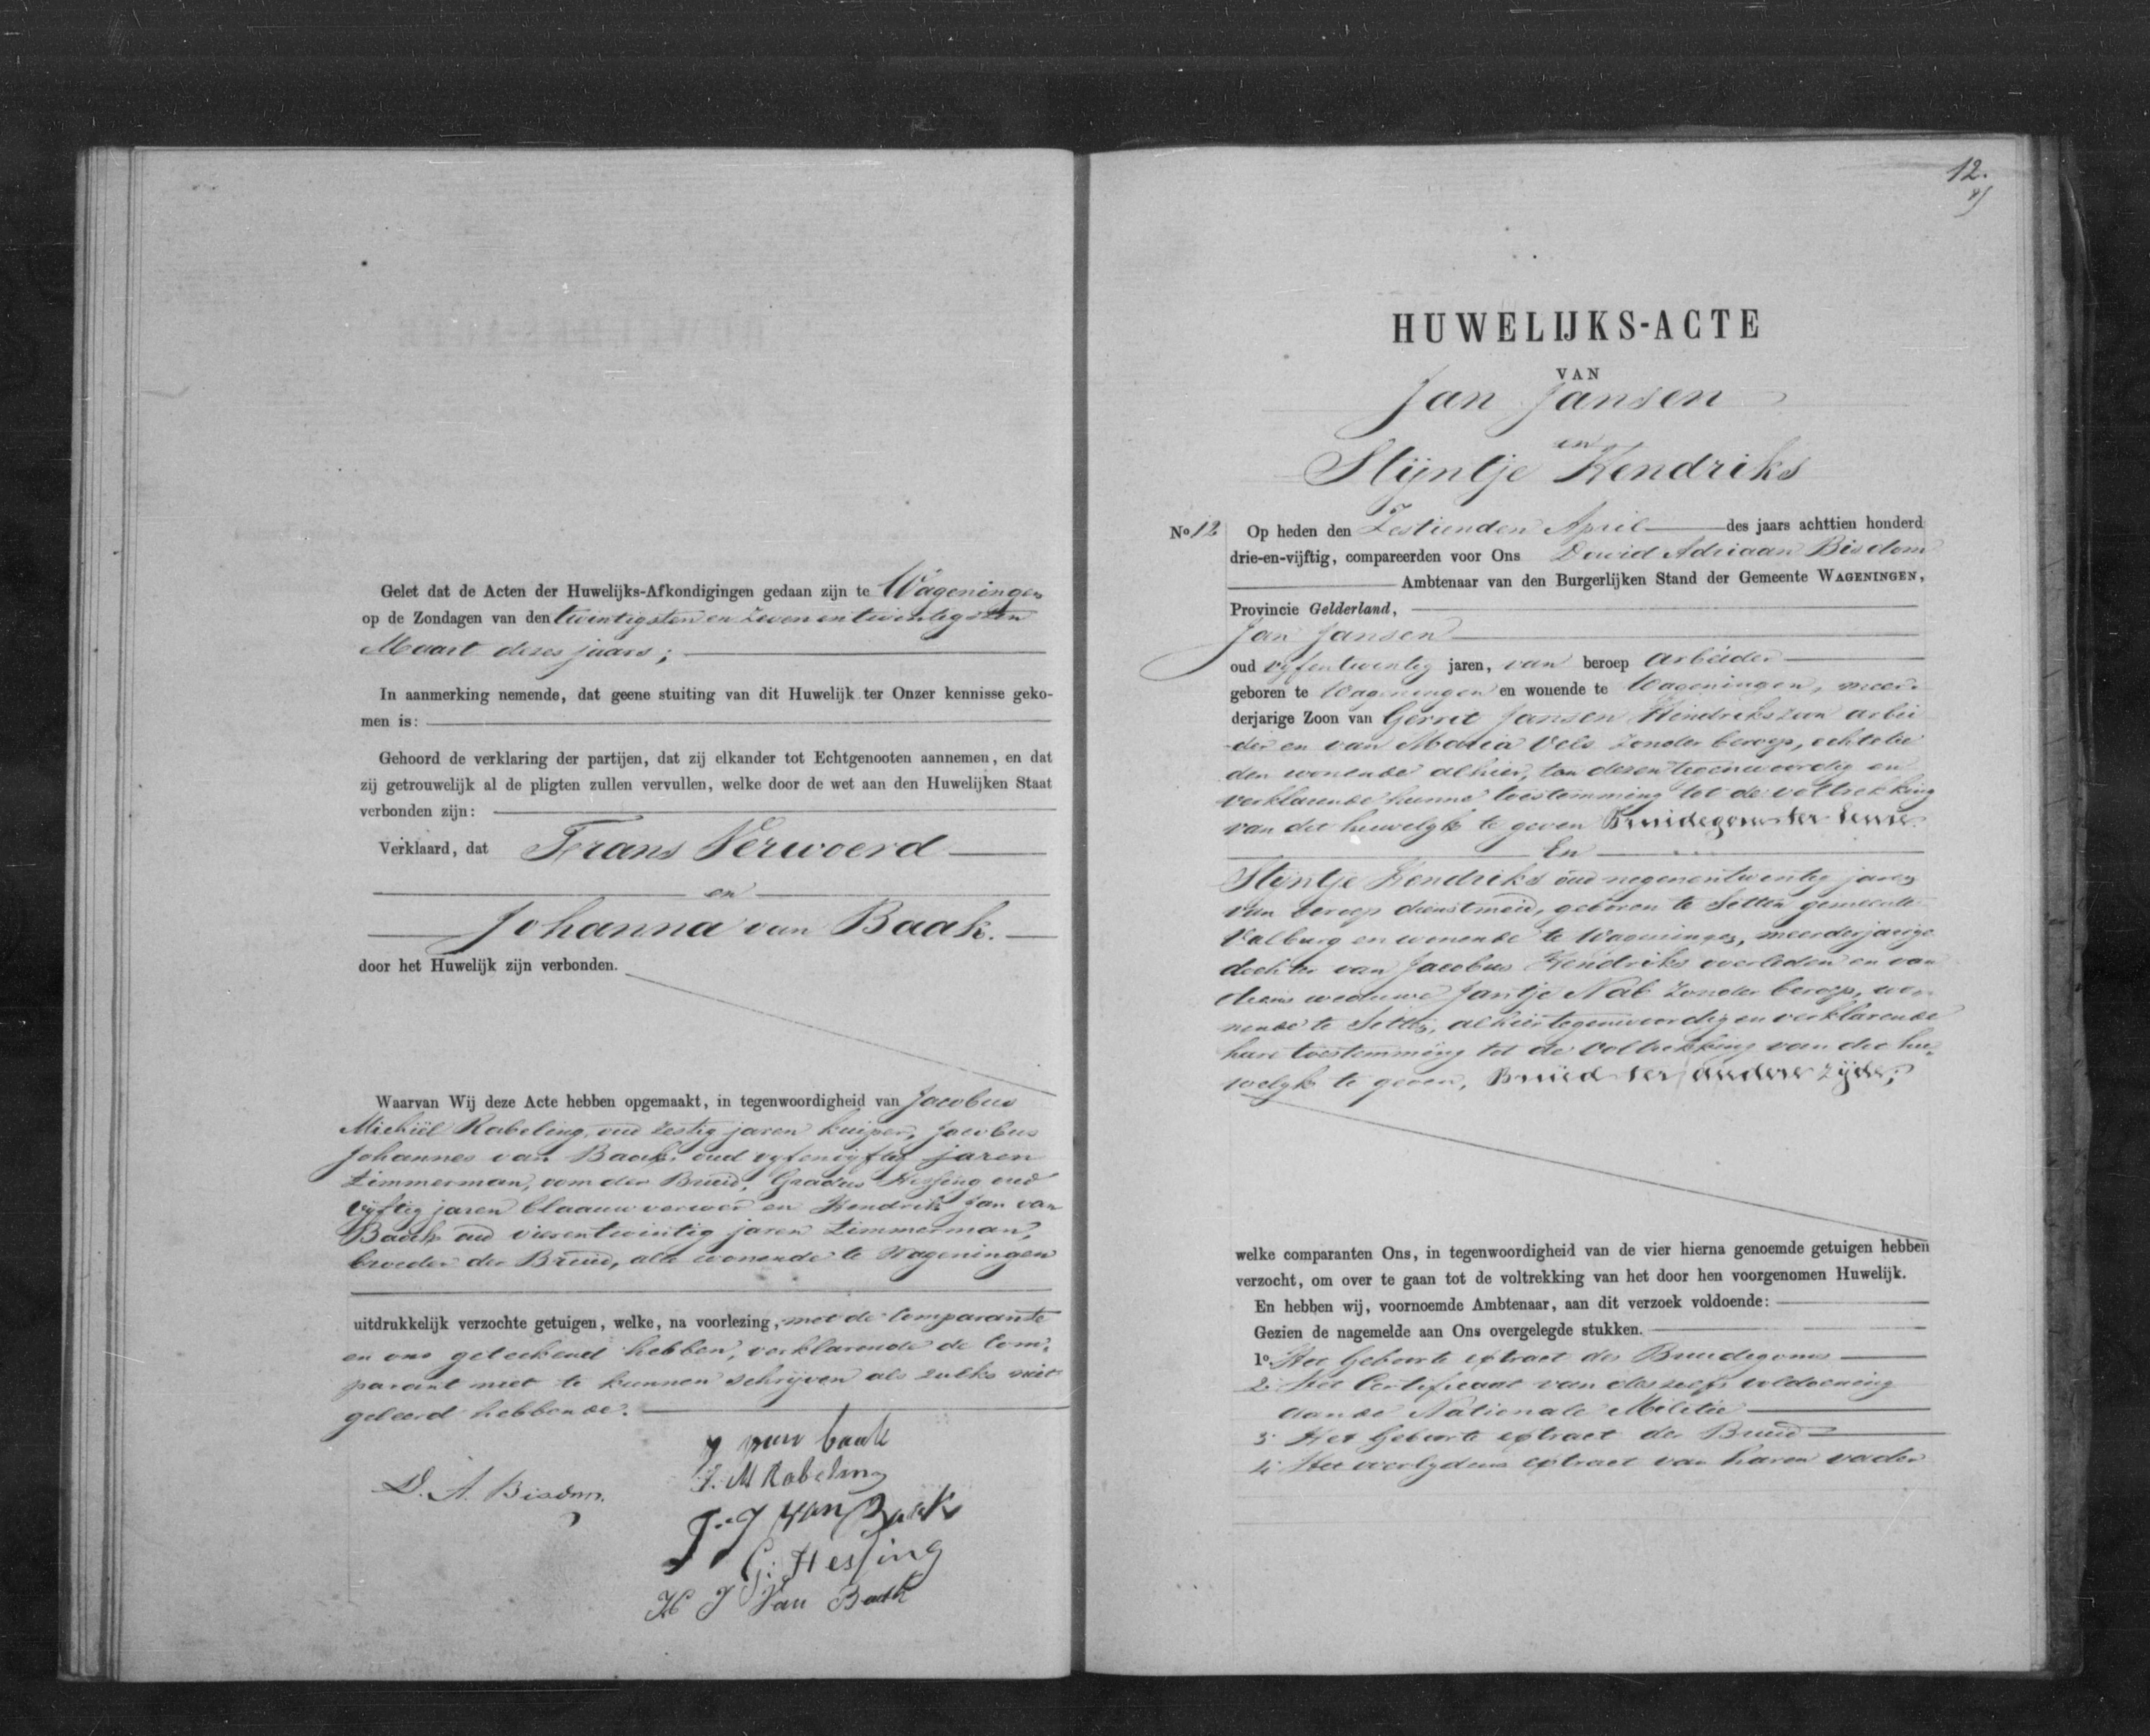 Gelet dat de Acten der Huwelijks-Afkondigingen gedaan zijn te Wageningen
op de Zondagen van den twintigsten en zevenentwintigsten
Maart dezes jaars;
In aanmerking nemende, dat geene stuiting van dit Huwelijk ter Onzer kennisse geko-
men is:
Gehoord de verklaring der partijen, dat zij elkander tot Echtgenooten aannemen, en dat
zij getrouwelijk al de pligten zullen vervullen, welke door de wet aan den Huwelijken Staat
verbonden zijn:
Verklaard, dat Frans Verwoerd
en
Johanna van Baak.
door het Huwelijk zijn verbonden.
Waarvan Wij deze Acte hebben opgemaakt, in tegenwoordigheid van Jacobus
Michiel Rabeling, oud zestig jaren kuiper, Jacobus
Johannes van Baak, oud vyfenvyftig jaren
Zimmerman, oom der Bruid, Gradus Hessing oud
vyftig jaren blaauwverwer en Hendrik Jan van
Baak oud vierentwintig jaren Zimmerman,
broeder der Bruid, alle wonende te Wageningen
uitdrukkelijk verzochte getuigen, welke, na voorlezing, met de Comparante
en ons geteekend hebben, verklarende de Com-
parant niet te kunnen schrijven als zulks niet
geleerd hebbende.
J van baak
J. M Rabeling
D. A. Bisdom.
J. J van Baak
G: Hessing
H J Van Baak
12.
HUWELIJKS-ACTE
VAN
Jan Jansen
en
Stijntje Hendriks
No 12 Op heden den Zestienden April des jaars achttien honderd
drie-en-vijftig, compareerden voor Ons David Adriaan Bisdom
Ambtenaar van den Burgerlijken Stand der Gemeente WAGENINGEN,
Provincie Gelderland,
Jan Jansen
oud vyfentwintig jaren, van beroep arbeider
geboren te Wageningen en wonende te Wageningen, meer-
derjarige Zoon van Gerrit Jansen Hendrikszoon arbei
der en van Maria Vels zonder beroep, echtelie
den wonende alhier, ten dezen tegenwoordig en
verklarende hunne toestemming tot de voltrekking
van dit huwelyk te geven Bruidegom ter eenre
En
Stijntje Hendriks oud negenentwintig jaren
van beroep dienstmeid, geboren te Setten gemeente
Valburg en wonende te Wageningen, meerderjarige
dochter van Jacobus Hendriks overleden en van
diens weduwe Jantje Nab zonder beroep, wo-
nende te Setten, alhier tegenwoordig en verklarende
hare toestemming tot de voltrekking van dit hu-
welyk te geven, Bruid ter andere zijde;
welke comparanten Ons, in tegenwoordigheid van de vier hierna genoemde getuigen hebben
verzocht, om over te gaan tot de voltrekking van het door hen voorgenomen Huwelijk.
En hebben wij, voornoemde Ambtenaar, aan dit verzoek voldoende:
Gezien de nagemelde aan Ons overgelegde stukken.
1o. Het Geboorte extract des Bruidegoms
2. Het Certificaat van deszelfs voldoening
aan de Nationale Militie
3 Het Geboorte extract der Bruid
4. Het overlydens extract van haren vader